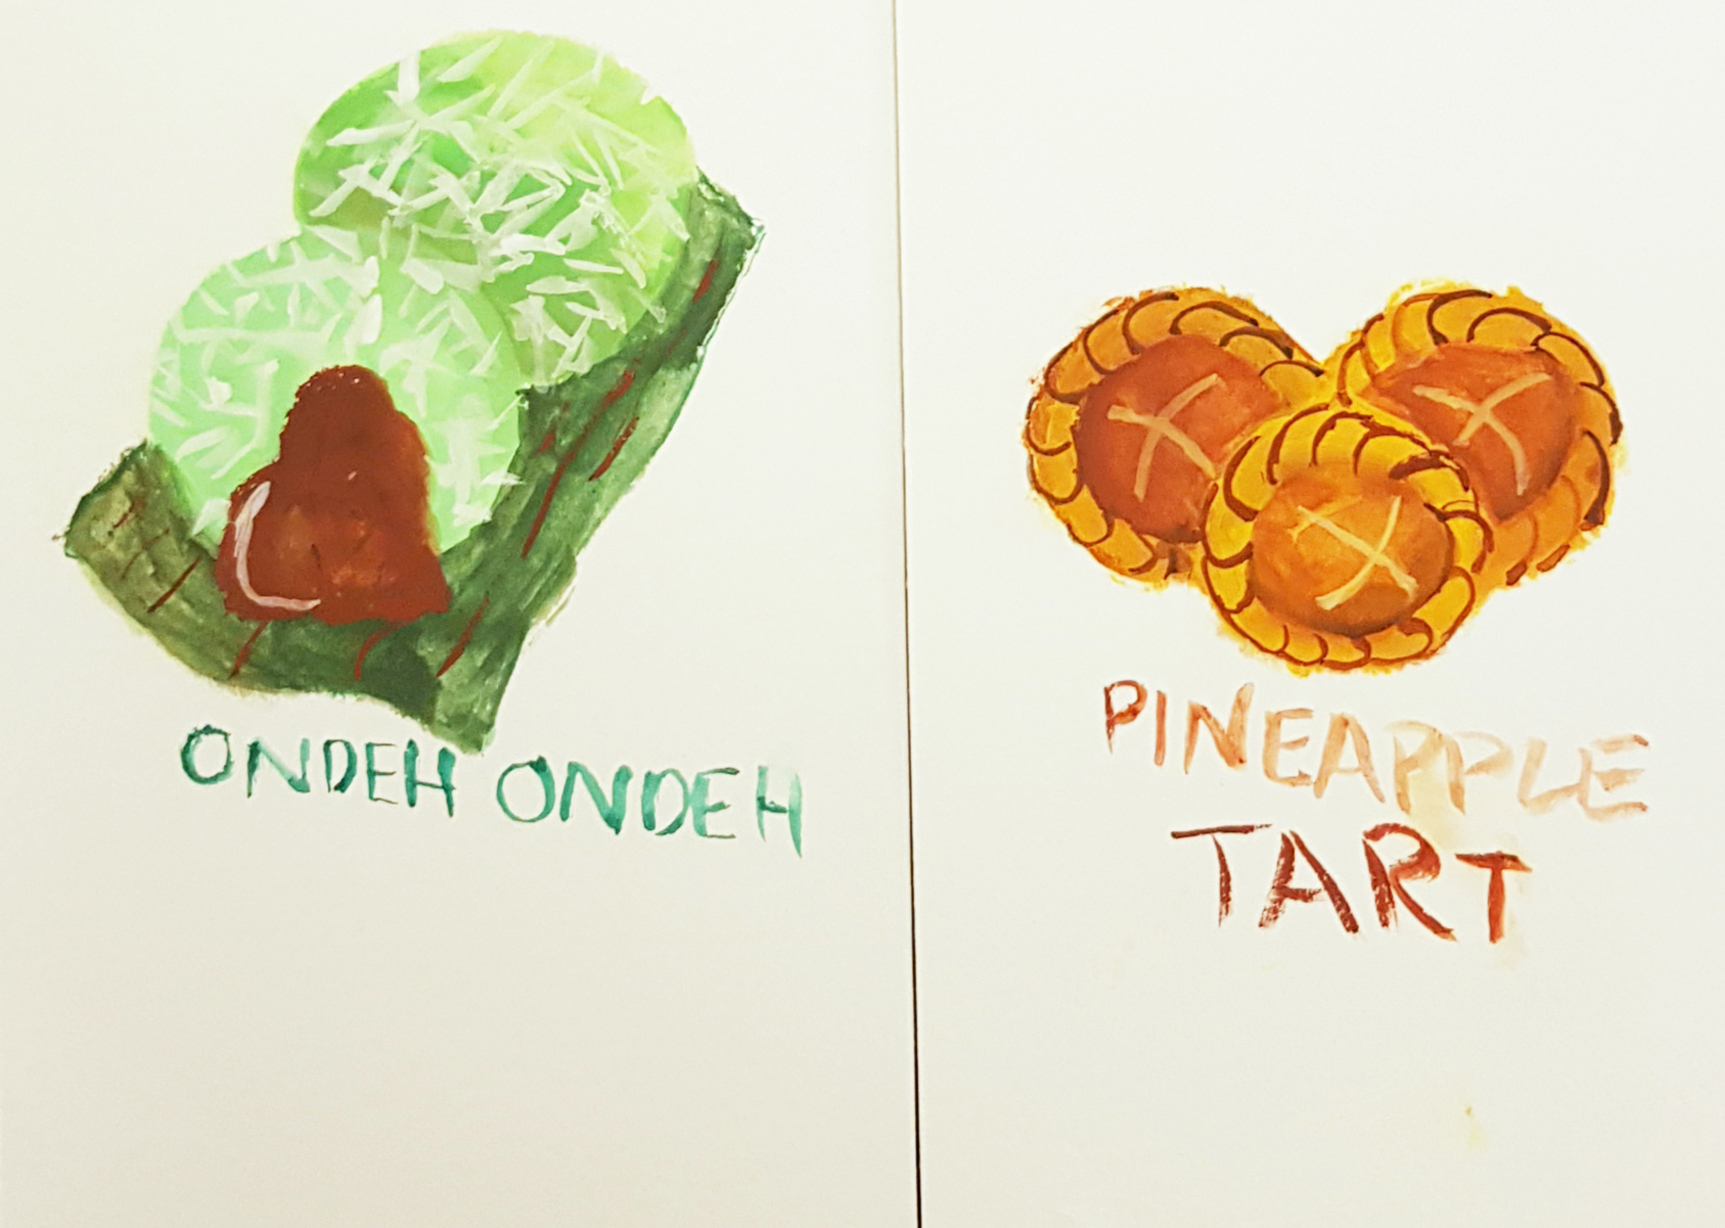 ONDEH ONDEH
PINEAPPLE
TART